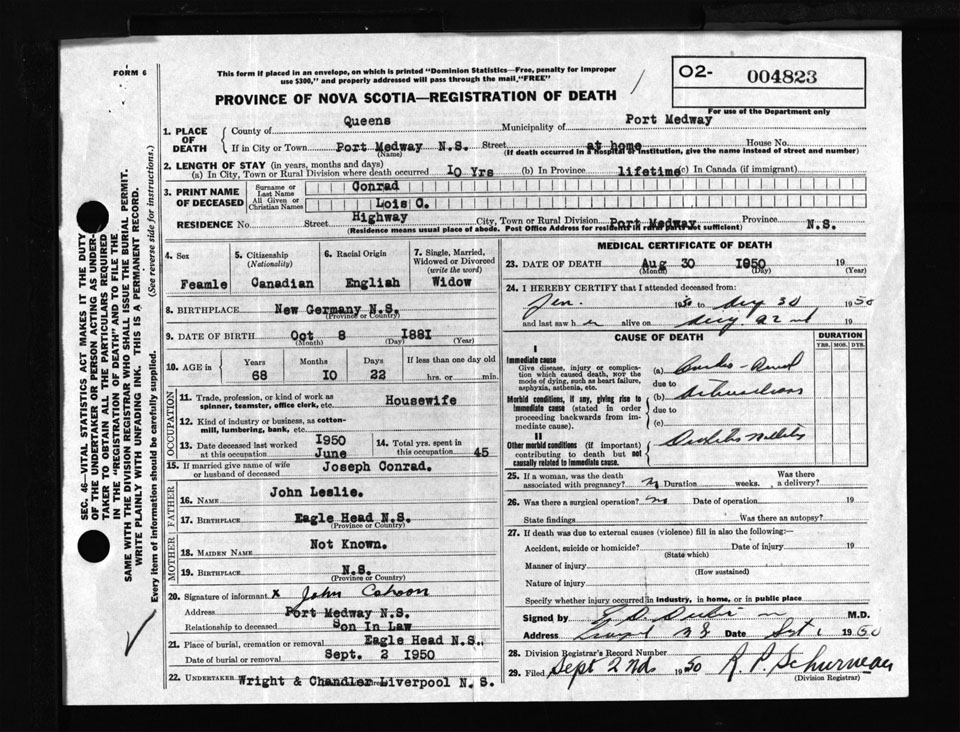 FORM 6
This form if placed in an envelope, on which is printed "Dominion Statistics—Free, penalty for improper
use $300," and properly addressed will pass through the mail, "FREE"
O2- 004823
For use of the Department only
PROVINCE OF NOVA SCOTIA—REGISTRATION OF DEATH
1. PLACE OF DEATH
County of Queens Municipality of Port Medway
If in City or Town Port Medway N.S. Street at home House No.
(Name) (If death occurred in a hospital or institution, give the name instead of street and number)
2. LENGTH OF STAY (in years, months and days)
(a) In City, Town or Rural Division where death occurred 10 Yrs (b) In Province lifetime (c) In Canada (if immigrant)
3. PRINT NAME OF DECEASED
Surname or Last Name Conrad
All Given or Christian Names Lois C.
RESIDENCE No. Street Highway City, Town or Rural Division Port Medway Province N.S.
(Residence means usual place of abode. Post Office Address for residents in rural parts not sufficient)
4. Sex Feamle
5. Citizenship (Nationality) Canadian
6. Racial Origin English
7. Single, Married, Widowed or Divorced (write the word) Widow
8. BIRTHPLACE New Germany N.S.
(Province or Country)
9. DATE OF BIRTH Oct 8 1881
(Month) (Day) (Year)
10. AGE in Years 68 Months 10 Days 22 If less than one day old hrs. or min.
OCCUPATION
11. Trade, profession, or kind of work as spinner, teamster, office clerk, etc. Housewife
12. Kind of industry or business, as cotton-mill, lumbering, bank, etc.
13. Date deceased last worked at this occupation 1950 June
14. Total yrs. spent in this occupation 45
15. If married give name of wife or husband of deceased Joseph Conrad.
FATHER
16. NAME John Leslie.
17. BIRTHPLACE Eagle Head N.S.
(Province or Country)
MOTHER
18. MAIDEN NAME Not Known.
19. BIRTHPLACE N.S.
(Province or Country)
20. Signature of informant x John Cohoon
Address Port Medway N.S.
Relationship to deceased Son In Law
21. Place of burial, cremation or removal Eagle Head N.S..
Date of burial or removal Sept. 2 1950
22. UNDERTAKER Wright & Chandler Liverpool N. S.
MEDICAL CERTIFICATE OF DEATH
23. DATE OF DEATH Aug 30 1950 19
(Month) (Day) (Year)
24. I HEREBY CERTIFY that I attended deceased from:
Jan. 1950 to Aug 30 1950
and last saw her alive on Aug. 22nd 19
CAUSE OF DEATH
DURATION
YRS. MOS. DYS.
I
Immediate cause
Give disease, injury or complication which caused death, NOT the mode of dying, such as heart failure, asphyxia, asthenia, etc.
(a) Cardio-Renal
due to
Morbid conditions, if any, giving rise to immediate cause (stated in order proceeding backwards from immediate cause).
(b)
due to
(c)
II
Other morbid conditions (if important) contributing to death but not causally related to immediate cause.
Diabetes Mellitus
25. If a woman, was the death associated with pregnancy? Duration weeks. Was there a delivery?
26. Was there a surgical operation? no Date of operation 19
State findings Was there an autopsy?
27. If death was due to external causes (violence) fill in also the following:—
Accident, suicide or homicide? Date of injury 19
(State which)
Manner of injury
(How sustained)
Nature of injury
Specify whether injury occurred in industry, in home, or in public place
Signed by M.D.
Address Date Sept 1 1950
28. Division Registrar's Record Number
29. Filed Sept 2nd 1950
(Division Registrar)
SEC. 46—VITAL STATISTICS ACT MAKES IT THE DUTY
OF THE UNDERTAKER OR PERSON ACTING AS UNDER-
TAKER TO OBTAIN ALL THE PARTICULARS REQUIRED
IN THE "REGISTRATION OF DEATH" AND TO FILE THE
SAME WITH THE DIVISION REGISTRAR WHO SHALL ISSUE THE BURIAL PERMIT.
WRITE PLAINLY WITH UNFADING INK. THIS IS A PERMANENT RECORD.
Every item of information should be carefully supplied. (See reverse side for instructions.)